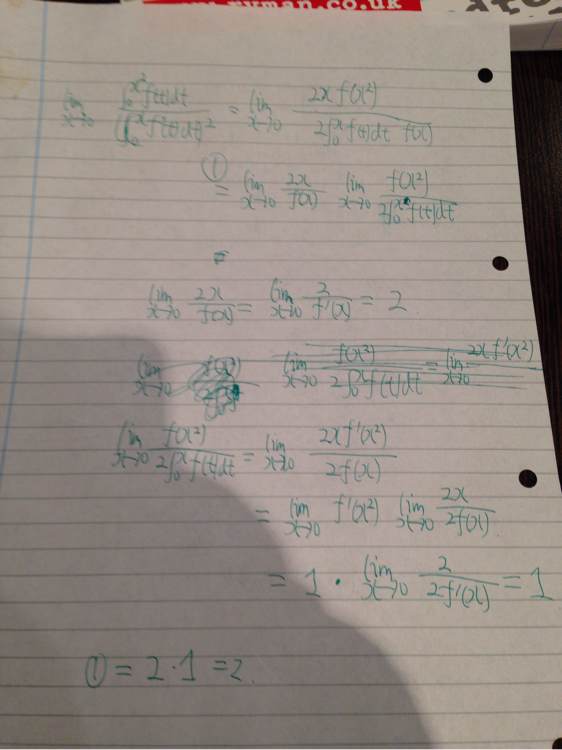 www.ryman.co.uk
lim x→0 ∫₀^{x²} f(t)dt / (∫₀^x f(t)dt)² = lim x→0 2x f(x²) / 2∫₀^x f(t)dt f(x)
① = lim x→0 2x / f(x) lim x→0 f(x²) / 2∫₀^x f(t)dt
=
lim x→0 2x / f(x) = lim x→0 2 / f'(x) = 2
lim x→0 f(x²) / 2∫₀^x f(t)dt = lim x→0 2x f'(x²)
lim x→0 f(x²) / 2∫₀^x f(t)dt = lim x→0 2x f'(x²) / 2f(x)
= lim x→0 f'(x²) lim x→0 2x / 2f(x)
= 1 · lim x→0 2 / 2f'(x) = 1
① = 2 · 1 = 2.